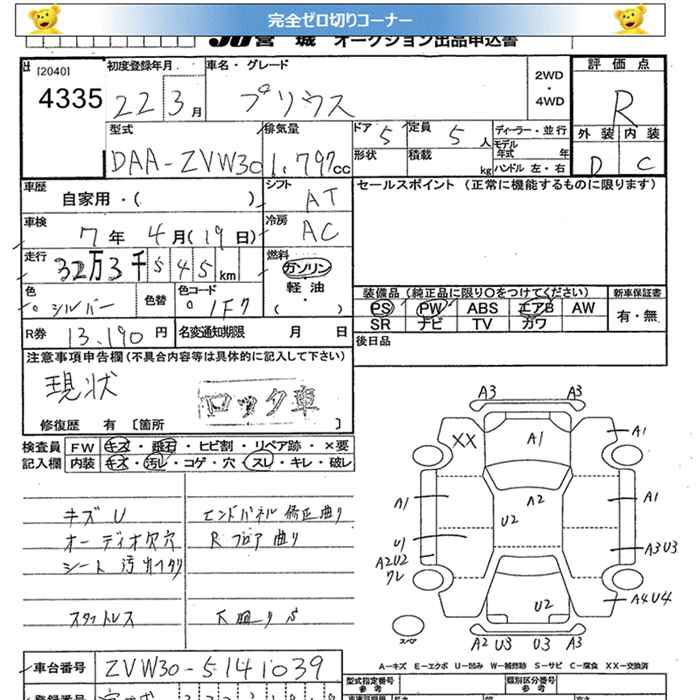 完全ゼロ切りコーナー
JU宮城 オークション出品申込書
[2040]
4335
初度登録年月
22 3月
車名・グレード
プリウス
2WD
・
4WD
評価点
R
外装 内装
D C
型式
DAA-ZVW30
排気量
1,797cc
ドア 5
定員 5人
形状
積載 kg
ディーラー・並行
モデル年式 年
ハンドル 左・右
車歴
自家用・( )
シフト
AT
セールスポイント (正常に機能するものに限ります)
車検
7年 4月(19日)
冷房
AC
走行
32万3千545km
燃料
ガソリン
軽油
・( )
色
シルバー
色替
色コード
1F7
装備品 (純正品に限り○をつけてください)
新車保証書
PS PW ABS エアB AW
SR ナビ TV カワ
有・無
R券 13,190円
名変通知期限 月 日
後日品
注意事項申告欄(不具合内容等は具体的に記入して下さい)
現状
ロック車
修復歴 有 [箇所 ]
検査員
記入欄
FW キズ・飛石・ヒビ割・リペア跡・×要
内装 キズ・汚レ・コゲ・穴・スレ・キレ・破レ
キズU
エンドパネル修正曲り
オーディオ欠穴
Rフロア曲り
シート汚れ
スタットレス
A3 A3
XX
A1
A1
A1
A2
U2
A1
U1
A2U2
A3U3
A4U4
U2
A2 U3 U3 A3
スペア
A-キズ E-エクボ U-凹み W-補修跡 S-サビ C-腐食 XX-交換済
車台番号
ZVW30-5141039
型式指定番号
参考
類別区分番号
参考
登録番号